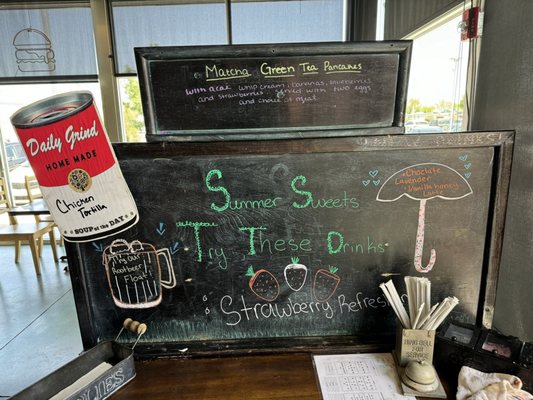 Matcha Green Tea Pancakes
with acai whip cream, bananas, blueberries
and strawberries served with two eggs
and choice of meat
Daily Grind
HOME MADE
Chicken
Tortilla
SOUP of the DAY
Summer Sweets
Try These Drinks
Strawberry Refresh
Choclate
Lavender
Vanilla honey
Latte
It's our
Rootbeer
Float
RING BELL
FOR
SERVICE